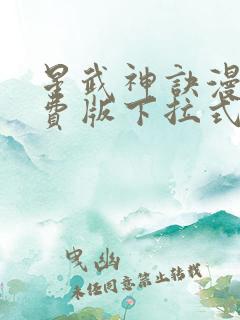 星武神訣漫
費版下拉式
曳幽
未经同意禁止转载